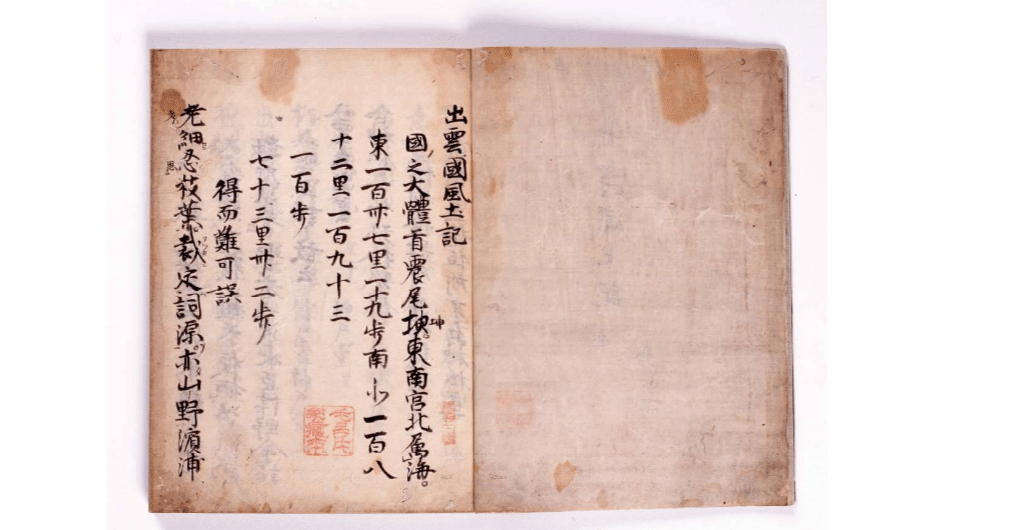 出雲國風土記
國之大體首震尾坤東南宮北属海。
坤
東一百卅七里一十九歩南北一百八
十二里一百九十三
一百歩
七十三里卅二歩
得而難可誤
老細枝葉裁定詞源亦山野濱浦
思